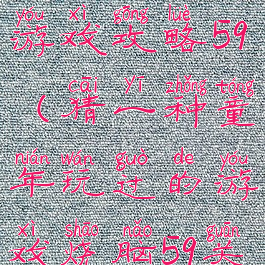 yóu xì gōng lüè
游戏攻略59
cāi yī zhǒng tóng
（猜一种童
nián wán guò de yóu
年玩过的游
xì shāo nǎo guān
戏烧脑59关